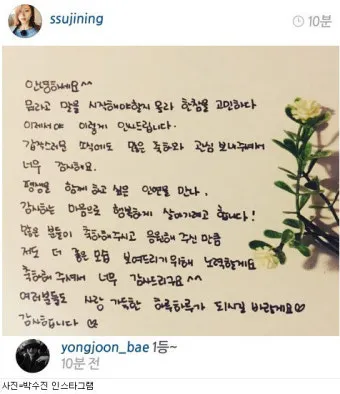 ssujining
10분
안녕하세요^^
뭐라고 말을 시작해야할지 몰라 한참을 고민하다
이제서야 이렇게 인사드립니다.
갑작스러운 소식에도 많은 축하와 관심 보내주셔서
너무 감사해요.
평생을 함께 하고 싶은 인연을 만나,
감사하는 마음으로 행복하게 살아가려고 합니다!
많은 분들이 축하해주시고 응원해 주신 만큼
저도 더 좋은 모습 보여드리기위해 노력할게요
축하해 주셔서 너무 감사드리구요^^
여러분들도 사랑 가득한 하루하루가 되시길 바랄게요♡
감사합니다 ♡
yongjoon_bae 1등~
10분 전
사진=박수진 인스타그램